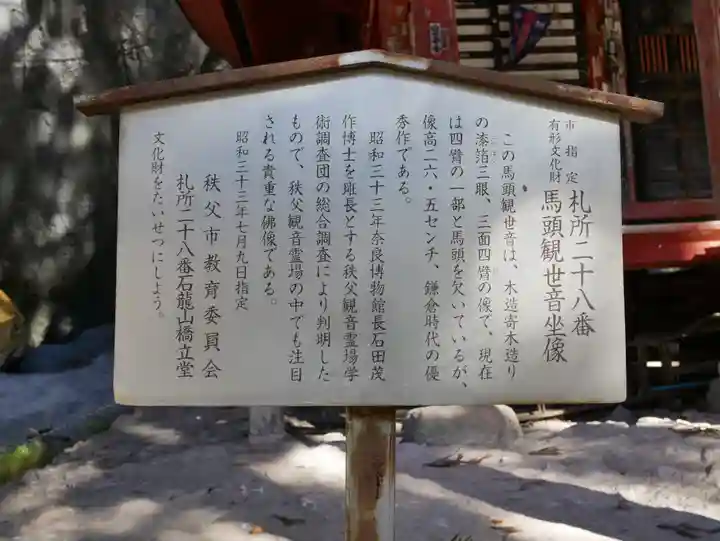 札所二十八番
市指定
有形文化財
馬頭観世音坐像
この馬頭観世音は、木造寄木造り
の漆箔三眼、三面四臂の像で、現在
は四臂の一部と馬頭を欠いているが、
像高二六・五センチ、鎌倉時代の優
秀作である。
昭和三十三年奈良博物館長石田茂
作博士を班長とする秩父観音霊場学
術調査団の総合調査により判明した
もので、秩父観音霊場の中でも注目
される貴重な佛像である。
昭和三十三年七月九日指定
秩父市教育委員会
札所二十八番石龍山橋立堂
文化財をたいせつにしよう。